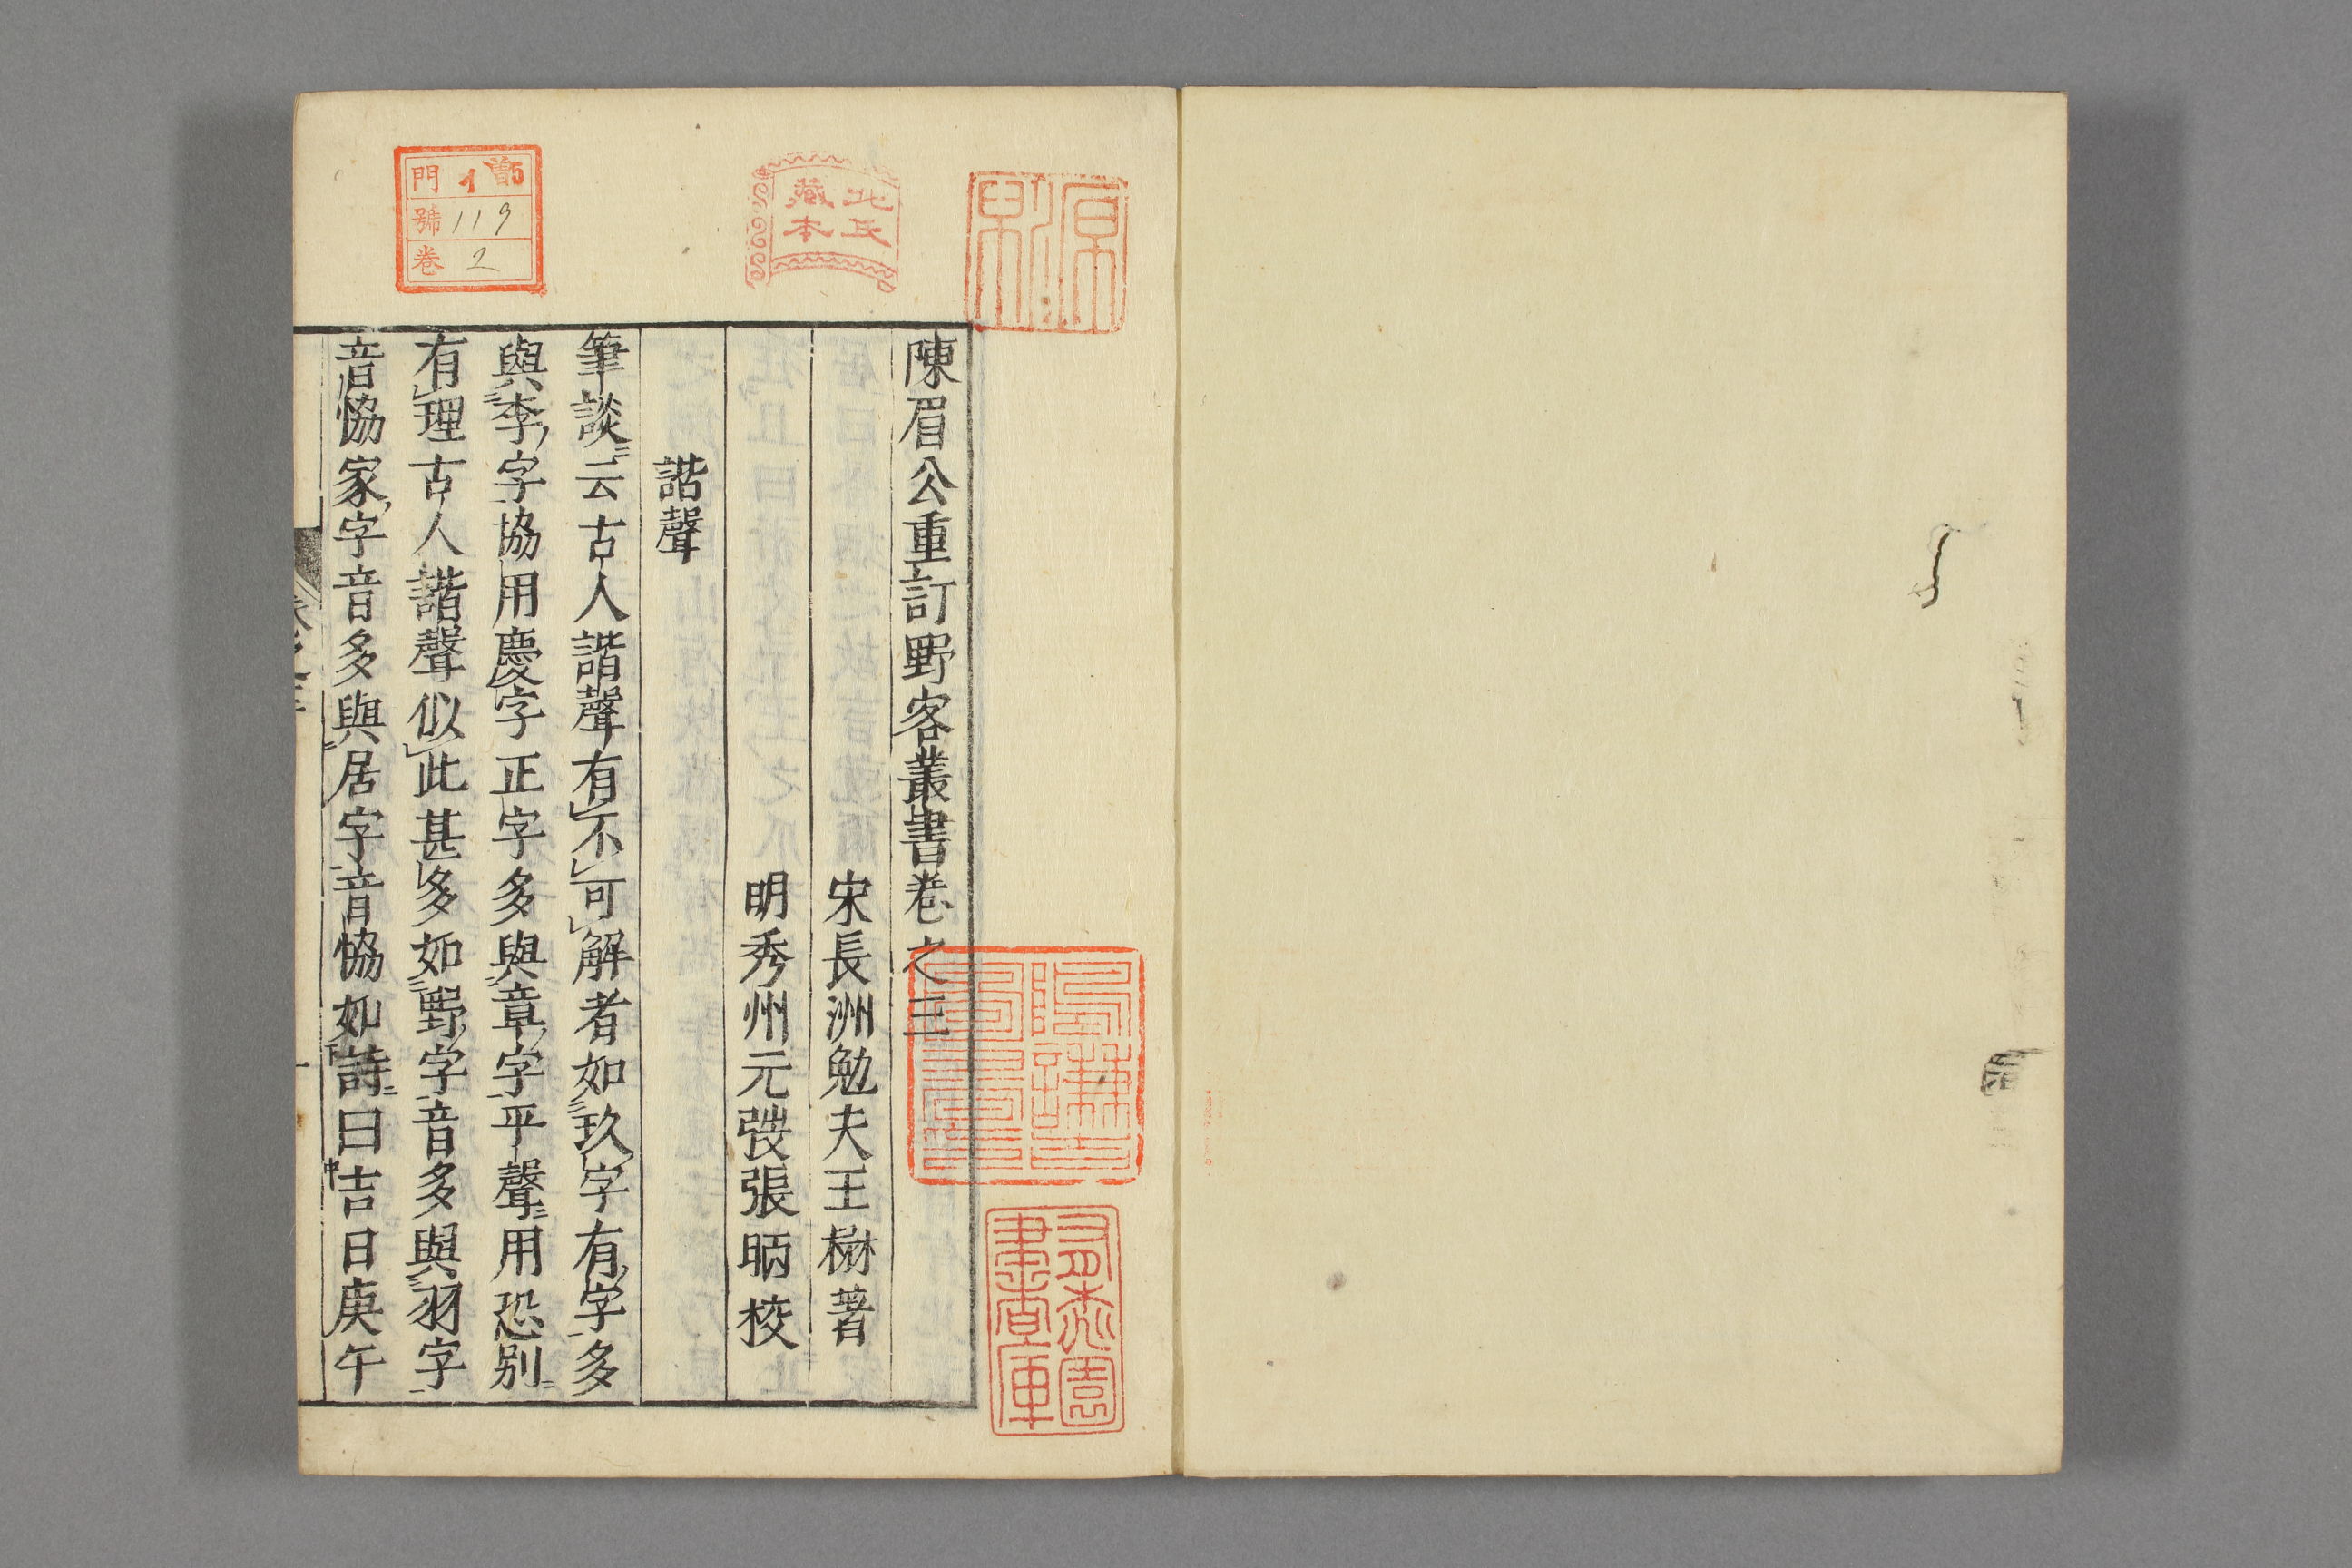 陳眉公重訂野客叢書卷之三
宋長洲勉夫王楙著
明秀州元弢張昞校
諧聲
筆談云古人諧聲有不可解者如玖字有字多
與李字協用慶字正字多與章字平聲用恐别
有理古人諧聲似此甚多如野字音多與羽字
音恊家字音多與居字音恊如詩曰吉日庚午
門 1 5
號 119
卷 2
北氏
藏本